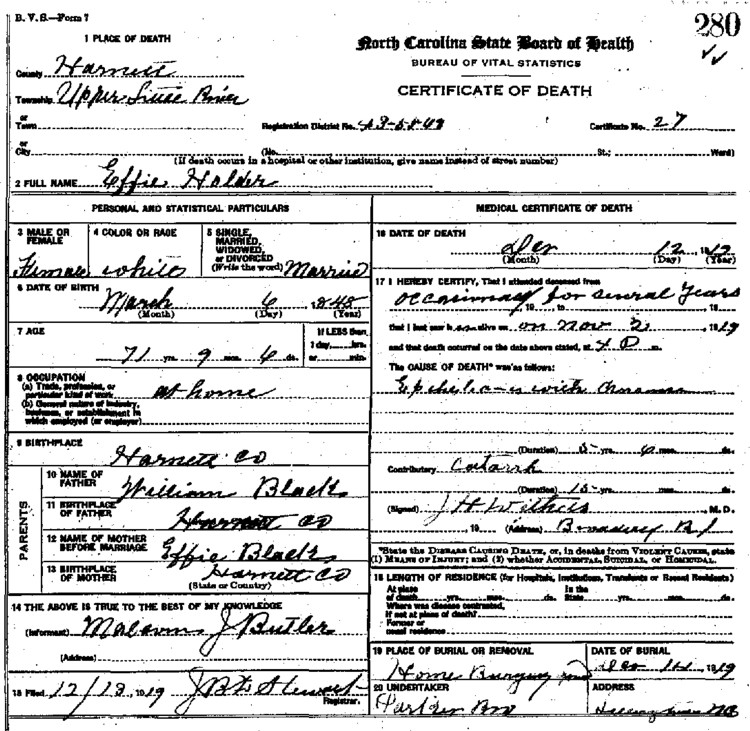 B. V. S.—Form 7
280
1 PLACE OF DEATH
North Carolina State Board of Health
BUREAU OF VITAL STATISTICS
CERTIFICATE OF DEATH
County Harnett
Township Upper Little River
or
Town
Registration District No. 43-5848
Certificate No. 27
or
City (No. St.; Ward)
(If death occurs in a hospital or other institution, give name instead of street number)
2 FULL NAME Effie Holder
PERSONAL AND STATISTICAL PARTICULARS
3 MALE OR FEMALE Female
4 COLOR OR RACE white
5 SINGLE, MARRIED, WIDOWED, or DIVORCED (Write the word) Married
6 DATE OF BIRTH March 6 1848
(Month) (Day) (Year)
7 AGE 71 yrs. 9 mos. 6 ds.
If LESS than 1 day, hrs. or min.
8 OCCUPATION at home
(a) Trade, profession, or particular kind of work
(b) General nature of industry, business, or establishment in which employed (or employer)
9 BIRTHPLACE Harnett Co
PARENTS
10 NAME OF FATHER William Black
11 BIRTHPLACE OF FATHER Harnett Co
12 NAME OF MOTHER BEFORE MARRIAGE Effie Black
13 BIRTHPLACE OF MOTHER Harnett Co
(State or Country)
14 THE ABOVE IS TRUE TO THE BEST OF MY KNOWLEDGE
(Informant) J Butler
(Address)
15 Filed 12/13 1919
Registrar.
MEDICAL CERTIFICATE OF DEATH
16 DATE OF DEATH Dec 12 1919
(Month) (Day) (Year)
17 I HEREBY CERTIFY, That I attended deceased from
for several years
, 19 , to , 19
that I last saw h alive on on Nov 2 , 1919
and that death occurred on the date above stated, at 4 P m.
The CAUSE OF DEATH* was as follows:
with
(Duration) 5 yrs. 6 mos. ds.
Contributory Catarrh
(Duration) 15 yrs. mos. ds.
(Signed) J H Withers , M. D.
, 19 (Address) Broadway
*State the DISEASE CAUSING DEATH, or, in deaths from VIOLENT CAUSES, state
(1) MEANS OF INJURY; and (2) whether ACCIDENTAL, SUICIDAL, or HOMICIDAL.
18 LENGTH OF RESIDENCE (for Hospitals, Institutions, Transients or Recent Residents)
At place of death yrs. mos. ds. In the State yrs. mos. ds.
Where was disease contracted,
if not at place of death?
Former or
usual residence
19 PLACE OF BURIAL OR REMOVAL Home Burying
DATE OF BURIAL Dec 14 1919
20 UNDERTAKER
ADDRESS